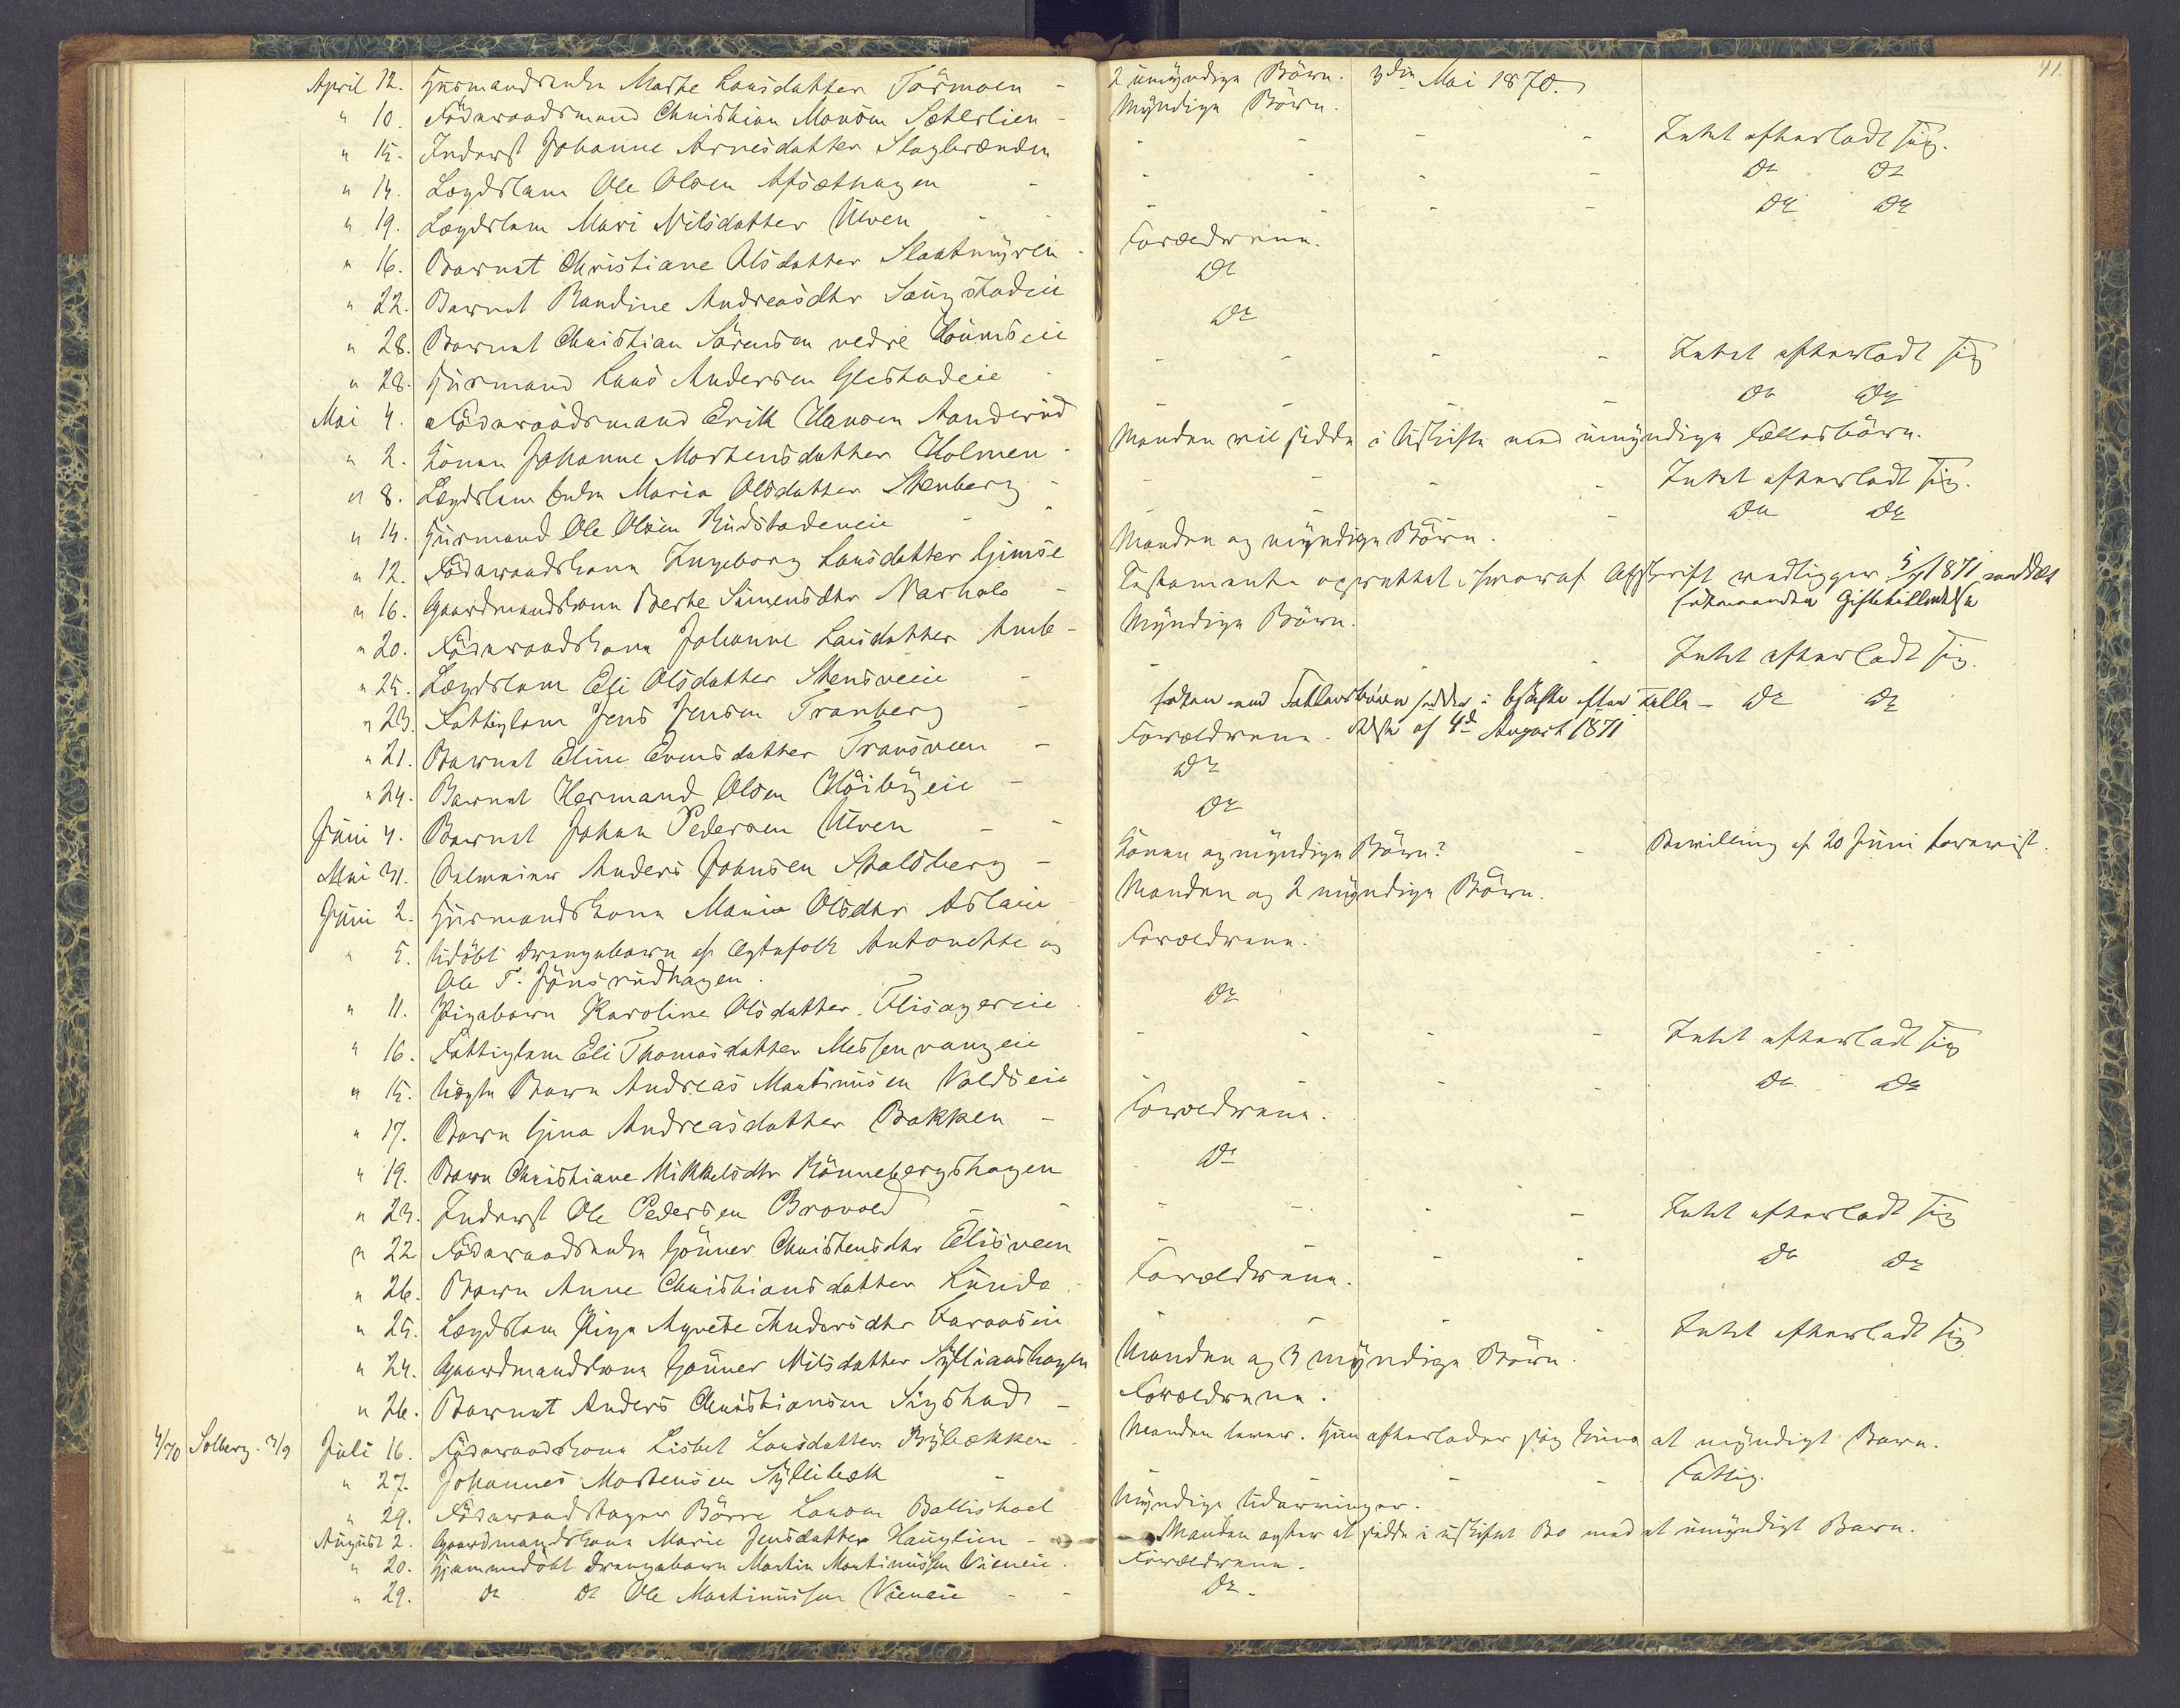 41.
April 12. Husmandsenke Marthe Larsdatter Tørmoen - 2 umyndige Børn. 3die Mai 1870.
" 10. Føderaadsmand Christian Monsen Sæterlien - Myndige Børn.
" 15. Inderst Johanne Arnesdatter Slagbrænden - - - Intet efterladt sig.
" 14. Lægdslem Ole Olsen Afsæthagen - - - - Do Do
" 19. Lægdslem Mari Nilsdatter Ulven - - - - Do Do
" 16. Barnet Christiane Olsdatter Slaatmyren - Forældrene.
" 22. Barnet Randine Andreasdtr Saugstadeie Do
" 28. Barnet Christian Sørensen nedre Houmseie Do
" 28. Husmand Lars Andersen Glestadeie - - - - Intet efterladt sig
Mai 4. Føderaadsmand Erik Hansen Aanderud - - - - Do Do
" 2. Konen Johanne Mortensdatter Holmen - Manden vil sidde i Uskifte med umyndige Fællesbørn.
" 8. Lægdslem Enke Maria Olsdatter Stenberg - - - - Intet efterladt sig.
" 14. Husmand Ole Olsen Rudstadeneie - - - Do Do
" 12. Føderaadskone Ingeborg Larsdatter Gimse Manden og myndige Børn.
" 16. Gaardmandskone Berthe Simensdtr Narholo - Testamente oprettet, hvoraf Afskrift vedligger. 5/7 1871 meddelt
Enkemanden Giftetilladelse
" 20. Føderaadskone Johanne Larsdatter Amb - Myndige Børn.
" 25. Lægdslem Eli Olsdatter Stensveeie - - - Intet efterladt sig.
" 23. Fattiglem Jens Jensen Tranberg - Enken med Fællesbørn sidder i Uskifte efter Tilla- Do Do
" 21. Barnet Eline Evensdatter Transveen - Forældrene. delse af 4de August 1871
" 24. Barnet Hermand Olsen Høibyeie - Do
Juni 4. Barnet Johan Pedersen Ulven - - Do
Mai 31. Salmaier Anders Johnsen Skoldberg - Konen og myndige Børn? - Bevilling af 20 Juni forevist.
Juni 2. Husmandskone Maria Olsdtr Aslaeie Manden og 2 myndige Børn.
" 5. Udøbt Drengebarn af Ægtefolk Antonette og Forældrene.
Ole T. Jønsrudhagen.
" 11. Pigebarn Karoline Olsdatter Flisagereie Do
" 16. Fattiglem Eli Thomasdatter Messenvangeie - - - - Intet efterladt sig
" 15. Uægte Barn Andreas Martinusen Voldseie - - - - Do Do
" 17. Barn Gina Andreasdatter Bakken - Forældrene.
" 19. Barn Christiane Mikkelsdtr Rønnebergshagen Do
" 23. Inderst Ole Pedersen Brovold - - - - - - Intet efterladt sig
" 22. Føderaadsenke Gønner Christensdtr Elisveen - - - - Do Do
" 26. Barn Anne Christiansdatter Lunde Forældrene.
" 25. Lægdslem Pige Agnethe Andersdtr Faraaseie - - - - Intet efterladt sig
" 24. Gaardmandskone Gønner Nilsdatter Sylliaashagen Manden og 3 myndige Børn.
" 26. Barnet Anders Christiansen Sigstad - Forældrene.
4/70 Solberg. 3/9 Juli 16. Føderaadskone Lisbet Larsdatter Bybækken - Manden lever. Hun efterlader sig kuns et myndigt Barn.
" 27. Johannes Mortensen Syllibæk - - - - - Fattig.
" 29. Føderaadstager Børre Larsen Ballishoel Myndige Udarvinger.
August 2. Gaardmandskone Marie Jensdatter Hauglien - - Manden agter at sidde i uskiftet Bo med et umyndigt Barn.
" 20. Hjemmedøbt Drengebarn Martin Martinussen Vieneie. Forældrene.
" 29. Do Do Ole Martinussen Vieneie - - Do -